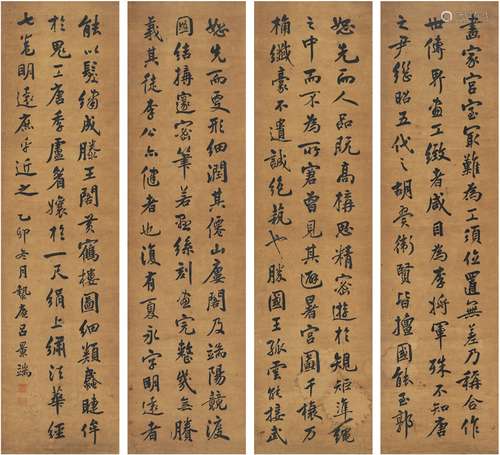 畫家宮室最難為工須位置無差乃稱合作
世傳界畫工緻者咸目為李將軍殊不知唐
之尹繼昭五代之胡賛衛賢皆擅國能至郭
恕先而人品既高構思精密遊於規矩準繩
之中而不為所窘曾見其避暑宮圖千榱万
桷纖豪不遺誠絕藝也勝國王孤雲能接武
恕先而更形細潤其僊山廔閣及端陽競渡
圖結搆邃密筆若懸絲刻畫完整幾無賸
義其徒李公亦健者也復有夏永字明遠者
能以髮繡成滕王閣黃鶴樓圖細類蟁睫侔
於鬼工唐季盧眉孃於一尺絹上繡法華經
七卷明遠庶乎近之 乙卯冬月蟄庵呂景端